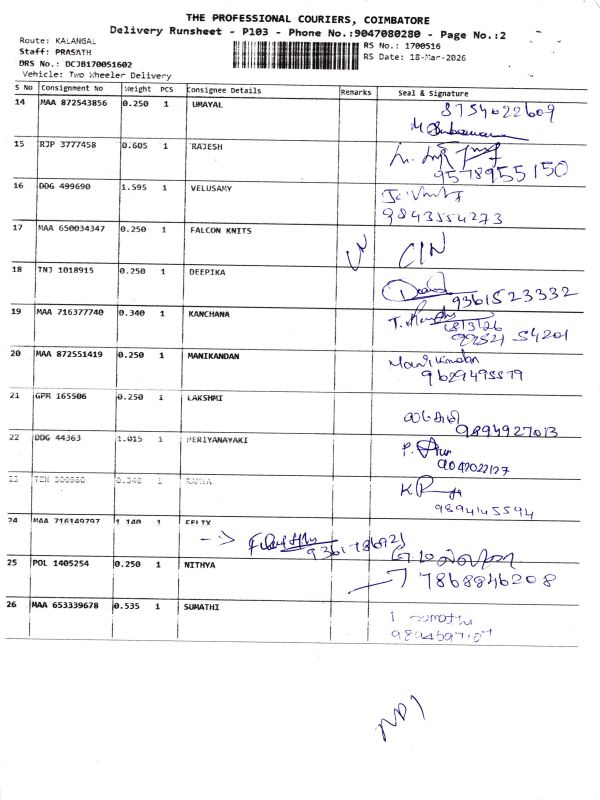 THE PROFESSIONAL COURIERS, COIMBATORE
Delivery Runsheet - P103 - Phone No.:9047080280 - Page No.:2
Route: KALANGAL
Staff: PRASATH
DRS No.: DCJB170051602
Vehicle: Two Wheeler Delivery
RS No.: 1700516
RS Date: 18-Mar-2026
S No Consignment No Weight PCS Consignee Details Remarks Seal & Signature
14 MAA 872543856 0.250 1 UMAYAL 8754022609
15 RJP 3777458 0.605 1 RAJESH 9578955150
16 DDG 499690 1.595 1 VELUSAMY 9843554273
17 MAA 650034347 0.250 1 FALCON KNITS
18 TNJ 1018915 0.250 1 DEEPIKA 9361523332
19 MAA 716377740 0.340 1 KANCHANA 18/3/26
20 MAA 872551419 0.250 1 MANIKANDAN Manikandan
21 GPM 165506 0.250 1 LAKSHMI 9894927013
22 DDG 44363 1.015 1 PERIYANAYAKI
23 1 9894145594
24 MAA 716149797 1.140 1 FELIX
25 POL 1405254 0.250 1 NITHYA 7868846208
26 MAA 653339678 0.535 1 SUMATHI sumathi